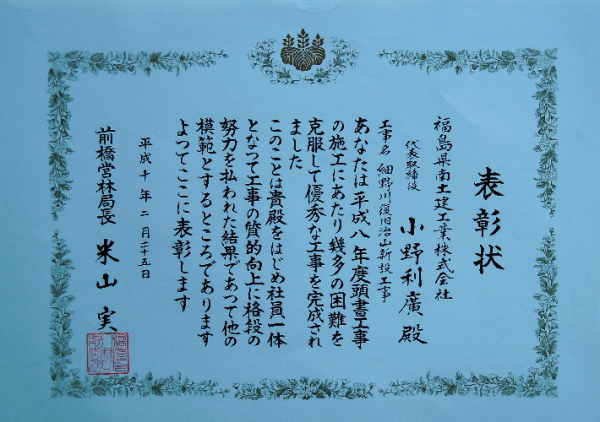 表彰状
福島県南土建工業株式会社
代表取締役
小野利廣殿
工事名 細野川復旧治山新設工事
あなたは平成八年度頭書工事
の施工にあたり幾多の困難を
克服して優秀な工事を完成され
ました
このことは貴殿をはじめ社員一体
となつて工事の質的向上に格段の
努力を払われた結果であつて他の
模範とするところであります
よつてここに表彰します
平成十年二月二十五日
前橋営林局長 米山実